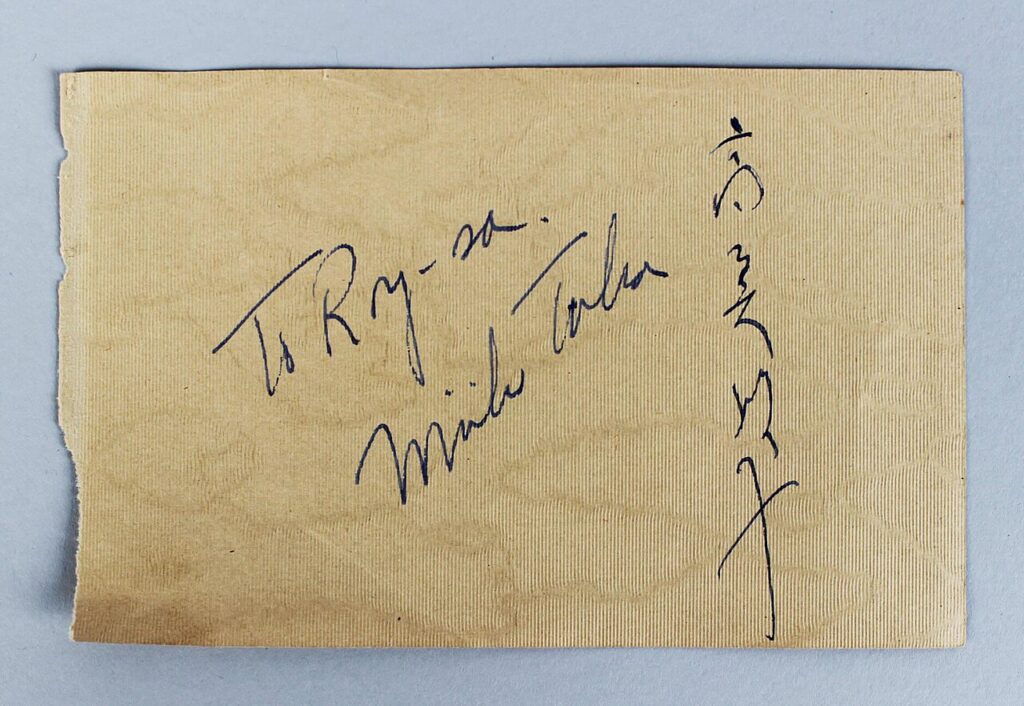 To Roy-san.
Miiko Taka
高美以子